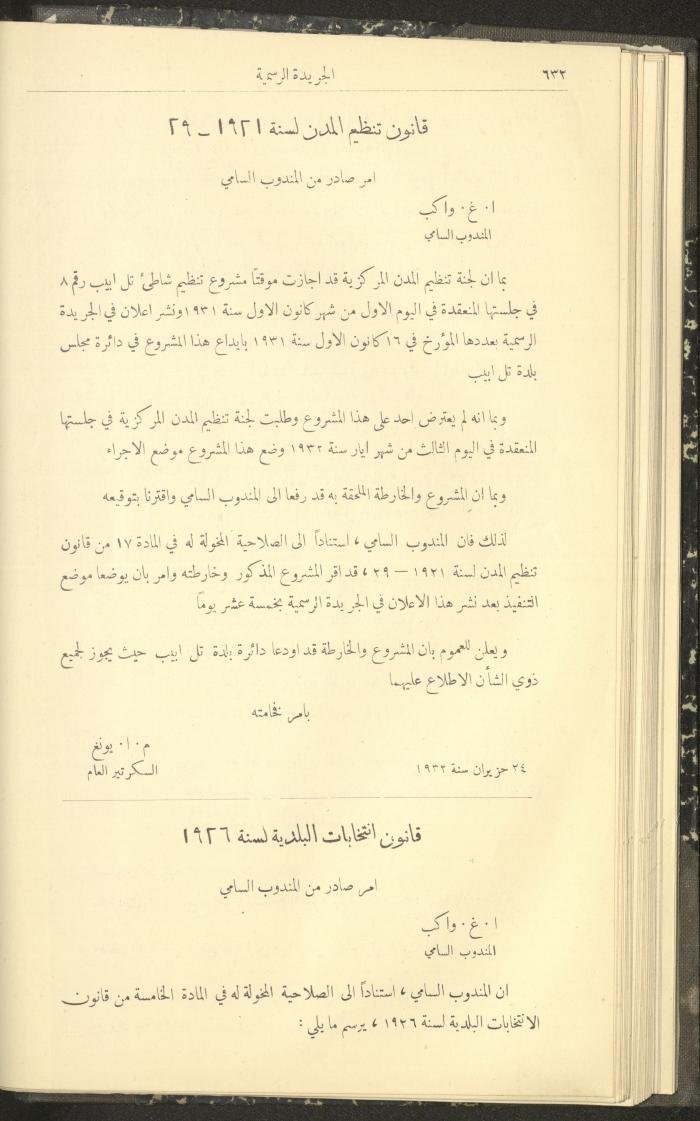 ٦٣٢
الجريدة الرسمية
قانون تنظيم المدن لسنة ١٩٢١ - ٢٩
امر صادر من المندوب السامي
ا٠ غ٠ واكب
المندوب السامي
بما ان لجنة تنظيم المدن المركزية قد اجازت موقتًا مشروع تنظيم شاطئ تل ابيب رقم ٨
في جلستها المنعقدة في اليوم الاول من شهر كانون الاول سنة ١٩٣١ ونشر اعلان في الجريدة
الرسمية بعددها المؤرخ في ١٦ كانون الاول سنة ١٩٣١ بايداع هذا المشروع في دائرة مجلس
بلدة تل ابيب
وبما انه لم يعترض احد على هذا المشروع وطلبت لجنة تنظيم المدن المركزية في جلستها
المنعقدة في اليوم الثالث من شهر ايار سنة ١٩٣٢ وضع هذا المشروع موضع الاجراء
وبما ان المشروع والخارطة الملحقة به قد رفعا الى المندوب السامي واقترنا بتوقيعه
لذلك فان المندوب السامي ، استناداً الى الصلاحية المخولة له في المادة ١٧ من قانون
تنظيم المدن لسنة ١٩٢١ — ٢٩ ، قد اقر المشروع المذكور وخارطته وامر بان يوضعا موضع
التنفيذ بعد نشر هذا الاعلان في الجريدة الرسمية بخمسة عشر يومًا
ويعلن للعموم بان المشروع والخارطة قد اودعا دائرة بلدة تل ابيب حيث يجوز لجميع
ذوي الشأن الاطلاع عليهما
بامر فخامته
م٠ ا٠ يونغ
٢٤ حزيران سنة ١٩٣٢
السكرتير العام
قانون انتخابات البلدية لسنة ١٩٢٦
امر صادر من المندوب السامي
ا٠ غ٠ واكب
المندوب السامي
ان المندوب السامي ، استناداً الى الصلاحية المخولة له في المادة الخامسة من قانون
الانتخابات البلدية لسنة ١٩٢٦ ، يرسم ما يلي :